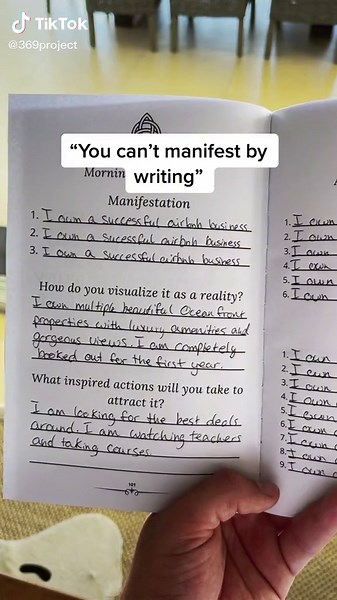 TikTok
@369project
“You can’t manifest by
writing”
Mornin
Manifestation
1. I own a successful airbnb business
2. I own a sucessful airbnb business
3. I own a successful airbnb business
How do you visualize it as a reality?
I own multiple beautiful Ocean front
properties with luxury amenities and
gorgeous views. I am completely
booked out for the first year.
What inspired actions will you take to
attract it?
I am looking for the best deals
around. I am watching teachers
and taking courses.
1. I own
2. I own
3. I own
4. I own
5. I own
6. I own
1. I own
2. I own
3. I own
4. I own
5. I own
6. I own
7. I own
8. I own
9. I own